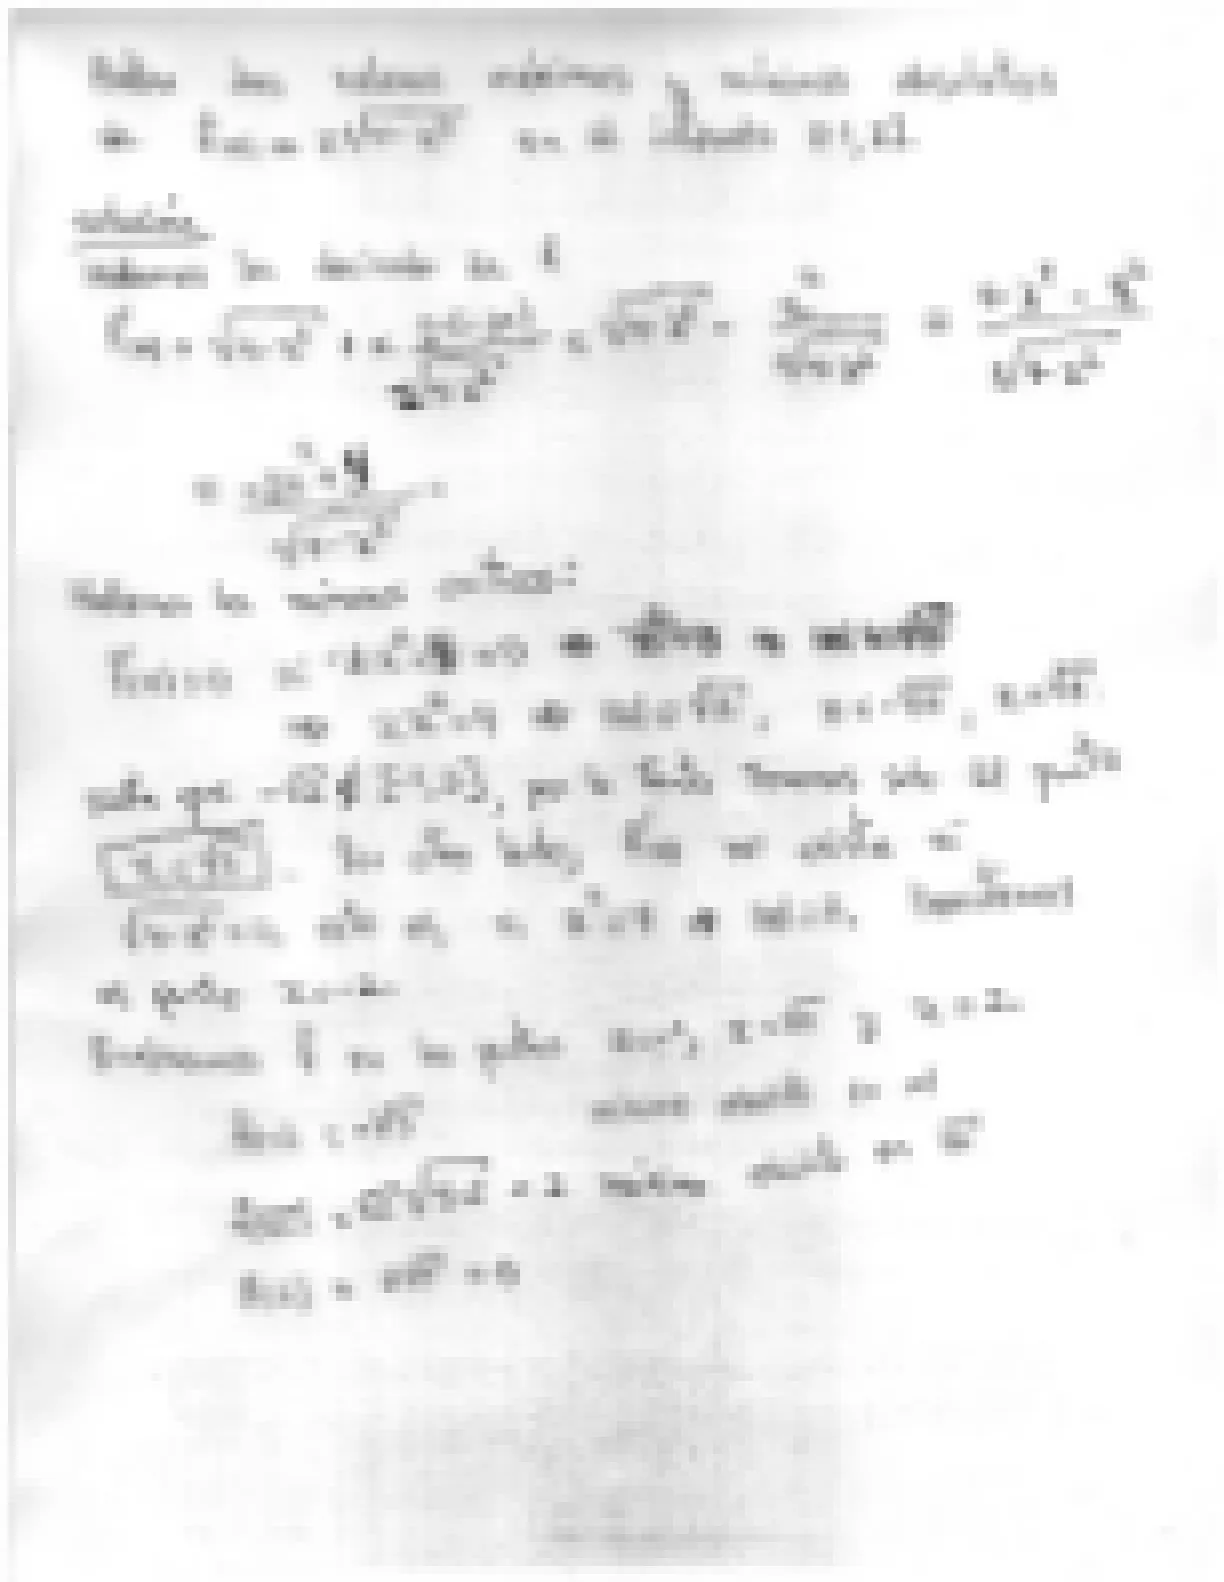 Hallar los valores máximos y mínimos absolutos
de f(x) = x√(4-x²) en el intervalo [-1,2].
solución
Hallamos la derivada de f
f'(x) = √(4-x²) + x · (-2x) / 2√(4-x²) = √(4-x²) - x² / √(4-x²) = 4-x²-x² / √(4-x²)
= -2x²+4 / √(4-x²)
Hallamos los números críticos:
f'(x)=0 si -2x²+4=0
⇒ 2x²=4 ⇒ |x|=√2, x=-√2, x=√2.
que -√2 ∉ [-1,2], por lo tanto tenemos solo el punto
x=√2. Por otro lado, f'(x) no existe si
√(4-x²)=0, esto es, si x²=4 ⇒ |x|=2,
el punto x=
Evaluamos f en los puntos x=-1, x=√2 y x=2.
f(-1) = -√3 mínimo absoluto en -1
f(√2) = √2√(4-2) = 2 máximo absoluto en √2
f(2) = 2√0 = 0